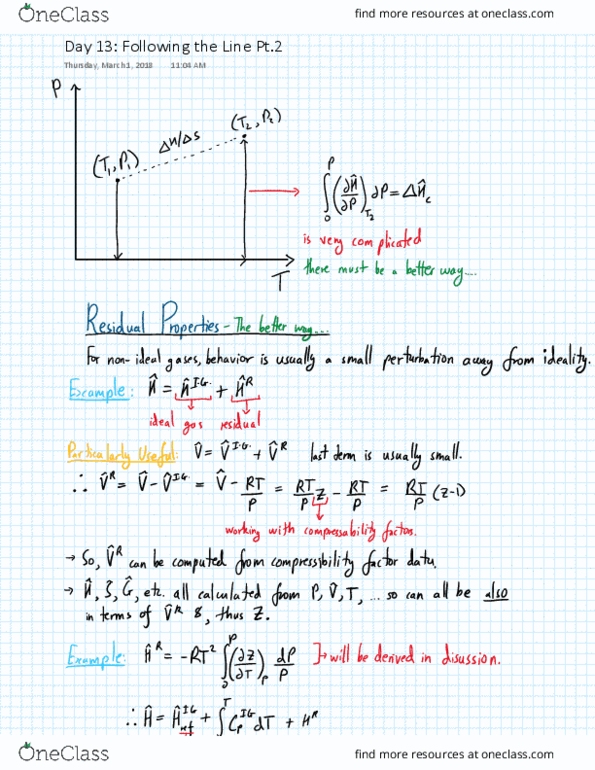 OneClass
find more resources at oneclass.com
Day 13: Following the Line Pt.2
Thursday, March 1, 2018 11:04 AM
P
(T₁, P₁)
ΔH/ΔS
(T₂, P₂)
T
∫₀ᴾ (∂Ĥ/∂P)_T₂ ∂P = ΔĤ_c
is very complicated
there must be a better way....
Residual Properties - The better way...
For non-ideal gases, behavior is usually a small perturbation away from ideality.
Example: Ĥ = Ĥ^I.G. + Ĥ^R
ideal gas residual
Particularly Useful: V̂ = V̂^I.G. + V̂^R last term is usually small.
∴ V̂^R = V̂ - V̂^IG = V̂ - RT/P = RT/P Z - RT/P = RT/P (Z-1)
working with compressability factor.
→ So, V̂^R can be computed from compressibility factor data.
→ Ĥ, Ŝ, Ĝ, etc. all calculated from P, V̂, T, ... so can all be also
in terms of V̂^R &, thus Z.
Example: Ĥ^R = -RT² ∫₀ᴾ (∂Z/∂T)_P dP/P }→ will be derived in disussion.
∴ Ĥ = Ĥ^IG_ref + ∫^T C_P^IG dT + H^R
OneClass
find more resources at oneclass.com